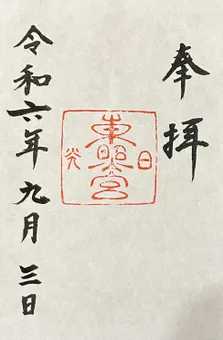 奉拝
日光
東照宮
令和六年九月三日